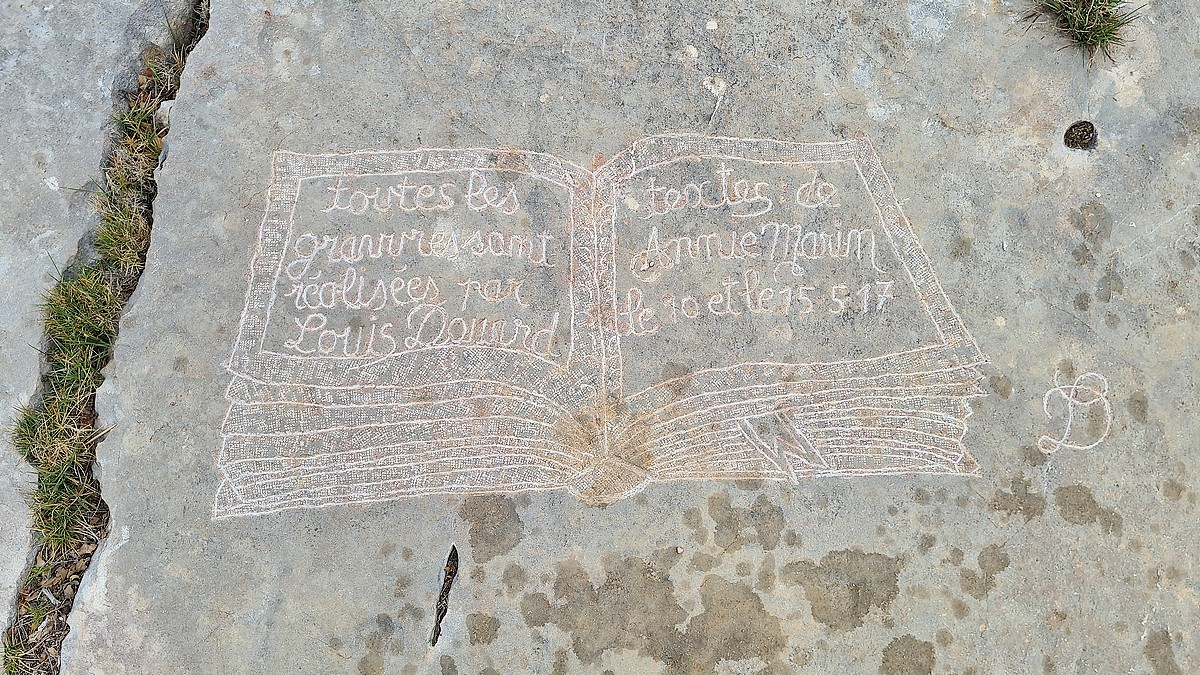 toutes les
gravures sont
réalisées par
Louis Douard
textes de
Annie Marin
le 10 et le 15 5 17